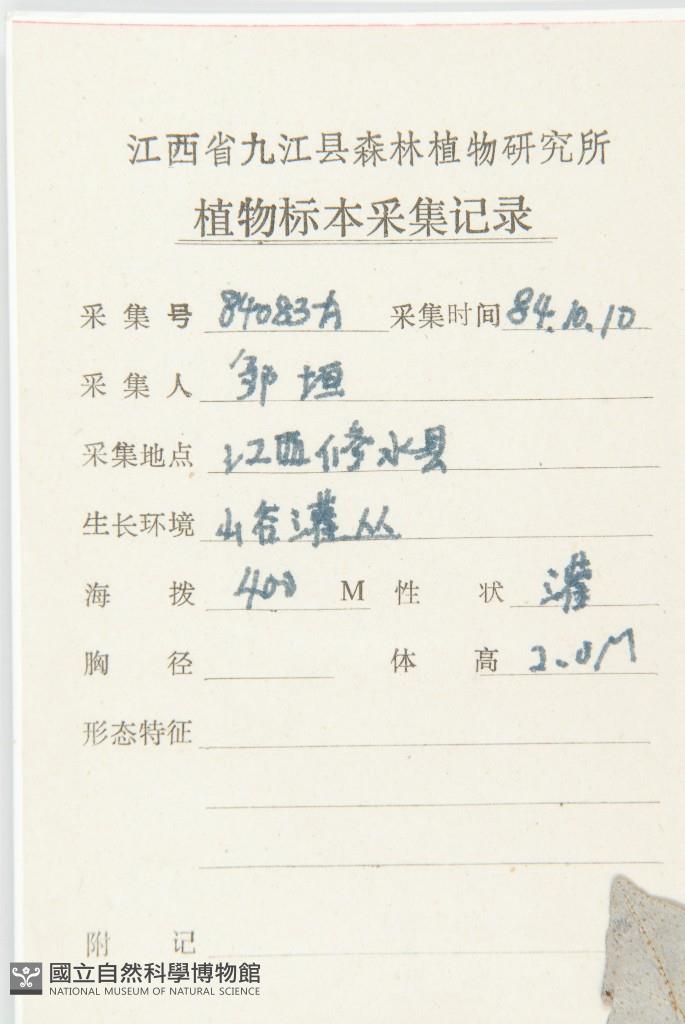 江西省九江县森林植物研究所
植物标本采集记录
采集号 84083A 采集时间 84.10.10
采集人 邹垣
采集地点 江西修水县
生长环境 山谷灌丛
海拨 400 M 性状 灌
胸径 体高 2.0M
形态特征
附记
國立自然科學博物館
NATIONAL MUSEUM OF NATURAL SCIENCE